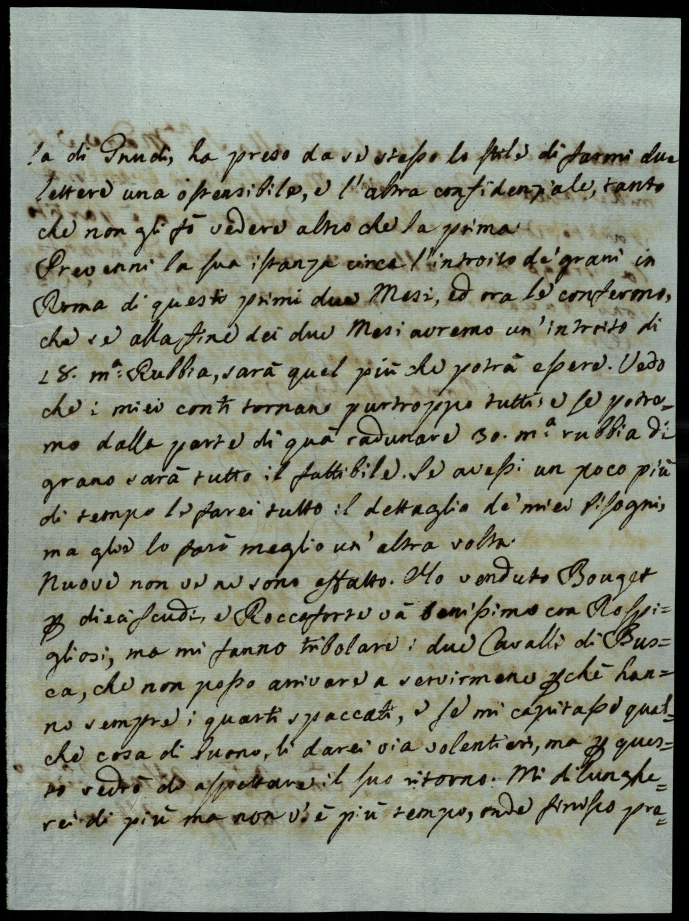 la di Gnudi, ha preso da se stesso lo stile di farmi due
lettere una ostensibile, e l'altra confidenziale, tanto
che non gli fò vedere altro che la prima.
Prevenni la sua istanza circa l'introito de' grani in
Roma di questi primi due Mesi, ed ora le confermo,
che se alla fine dei due Mesi avremo un' introito di
18. mª. Rubbia, sarà quel più che potrà essere. Vedo
che i miei conti tornano purtroppo tutti, e se potre=
mo dalla parte di quà radunare 30. mª rubbia di
grano sarà tutto il fattibile. Se avessi un poco più
di tempo le farei tutto il dettaglio de' miei bisogni,
ma glie lo farò meglio un' altra volta.
Nuove non ve ne sono affatto. Ho venduto Bouget
ꝑ dieci scudi, e Roccaforte và benissimo con Rospi=
gliosi, ma mi fanno tribolare i due Cavalli di Bus=
ca, che non posso arrivare a servirmene ꝑchè han=
no sempre i quarti spaccati, e se mi capitasse qual=
che cosa di buono, li darei via volentieri, ma ꝑ ques=
to vedrò di aspettare il suo ritorno. Mi dilunghe=
rei di più ma non v'è più tempo, onde finisco pre=